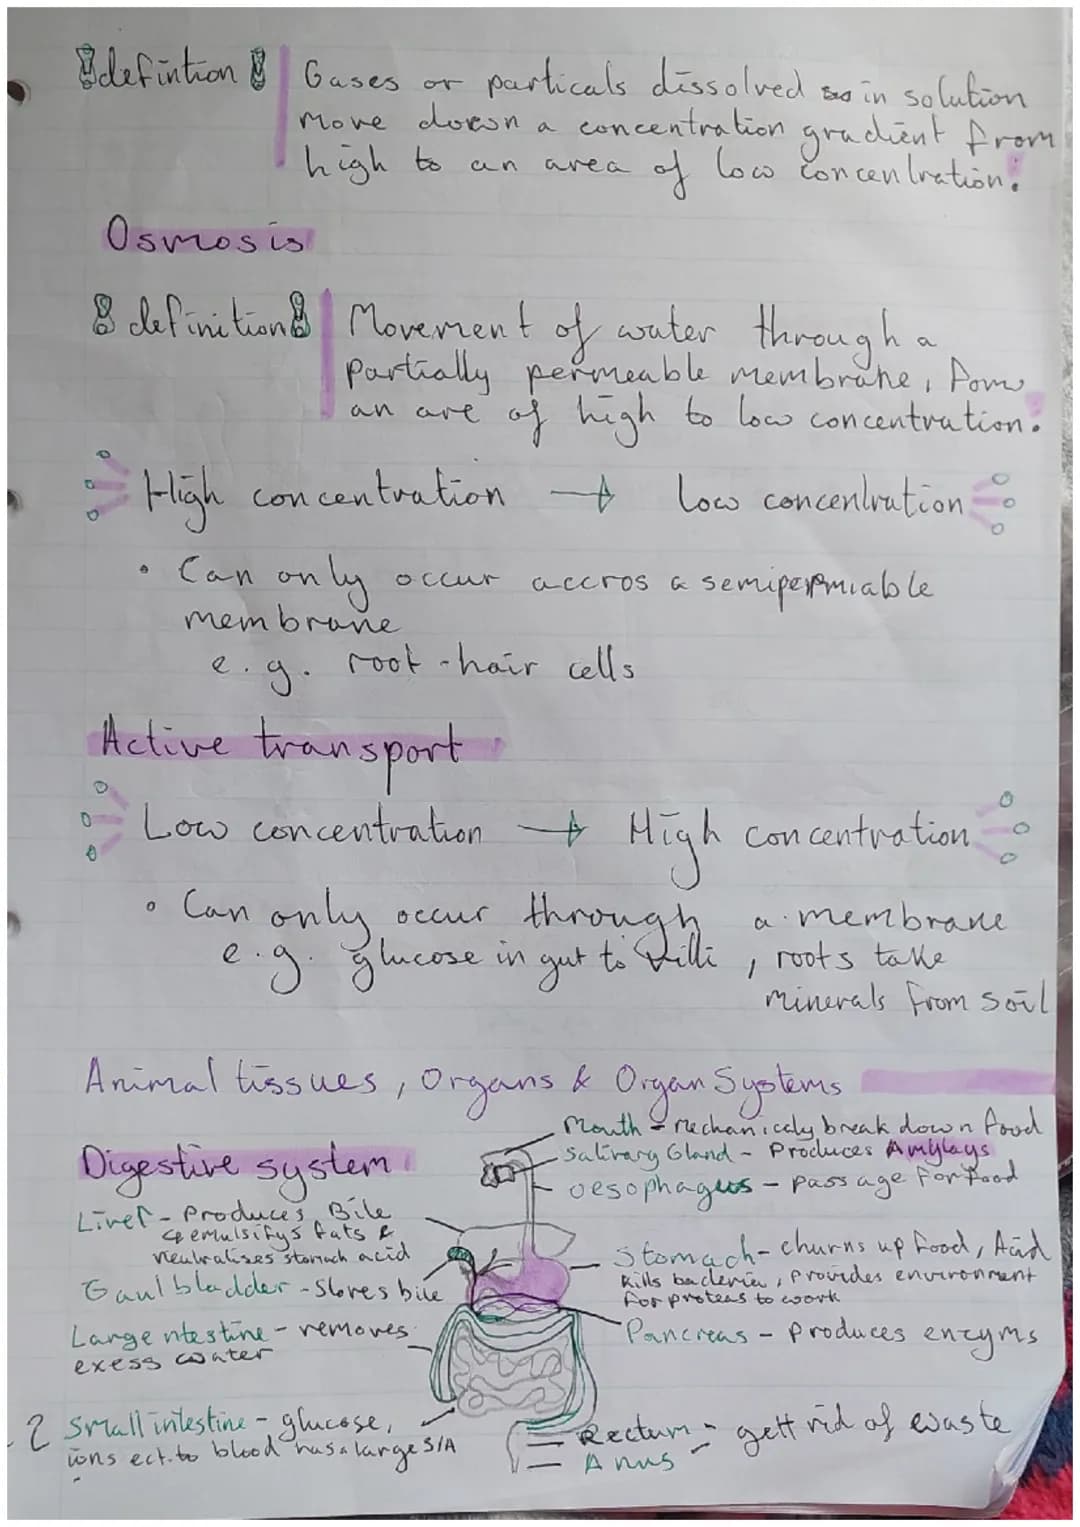 !defintion!
Gases or particals dissolved in solution
move down a concentration gradient from
high to an area of low concentration!
Osmosis
!definition!
Movement of water through a
partially permeable membrane, from
an are of high to low concentration!
High concentration → low concentration
• Can only occur accros a semipermiable
membrane
e.g. root-hair cells
Active transport
Low concentration → High concentration
• Can only occur through a membrane
e.g. glucose in gut to villi, roots take
minerals from soil
Animal tissues, Organs & Organ Systems
Digestive system
Mouth - mechanicaly break down food
Salivary Gland - Produces Amylays
oesophagus - passage for food
Liver - Produces Bile
emulsifys fats &
neutralises stomach acid
Gaul bladder - Stores bile
Large ntestine - removes
exess water
Small intestine - glucose,
ions ect. to blood has a large S/A
Stomach - churns up food, Acid
kills bacteria, provides environment
for proteas to work
Pancreas - produces enzyms
Rectum - gett rid of waste
Anus -
2